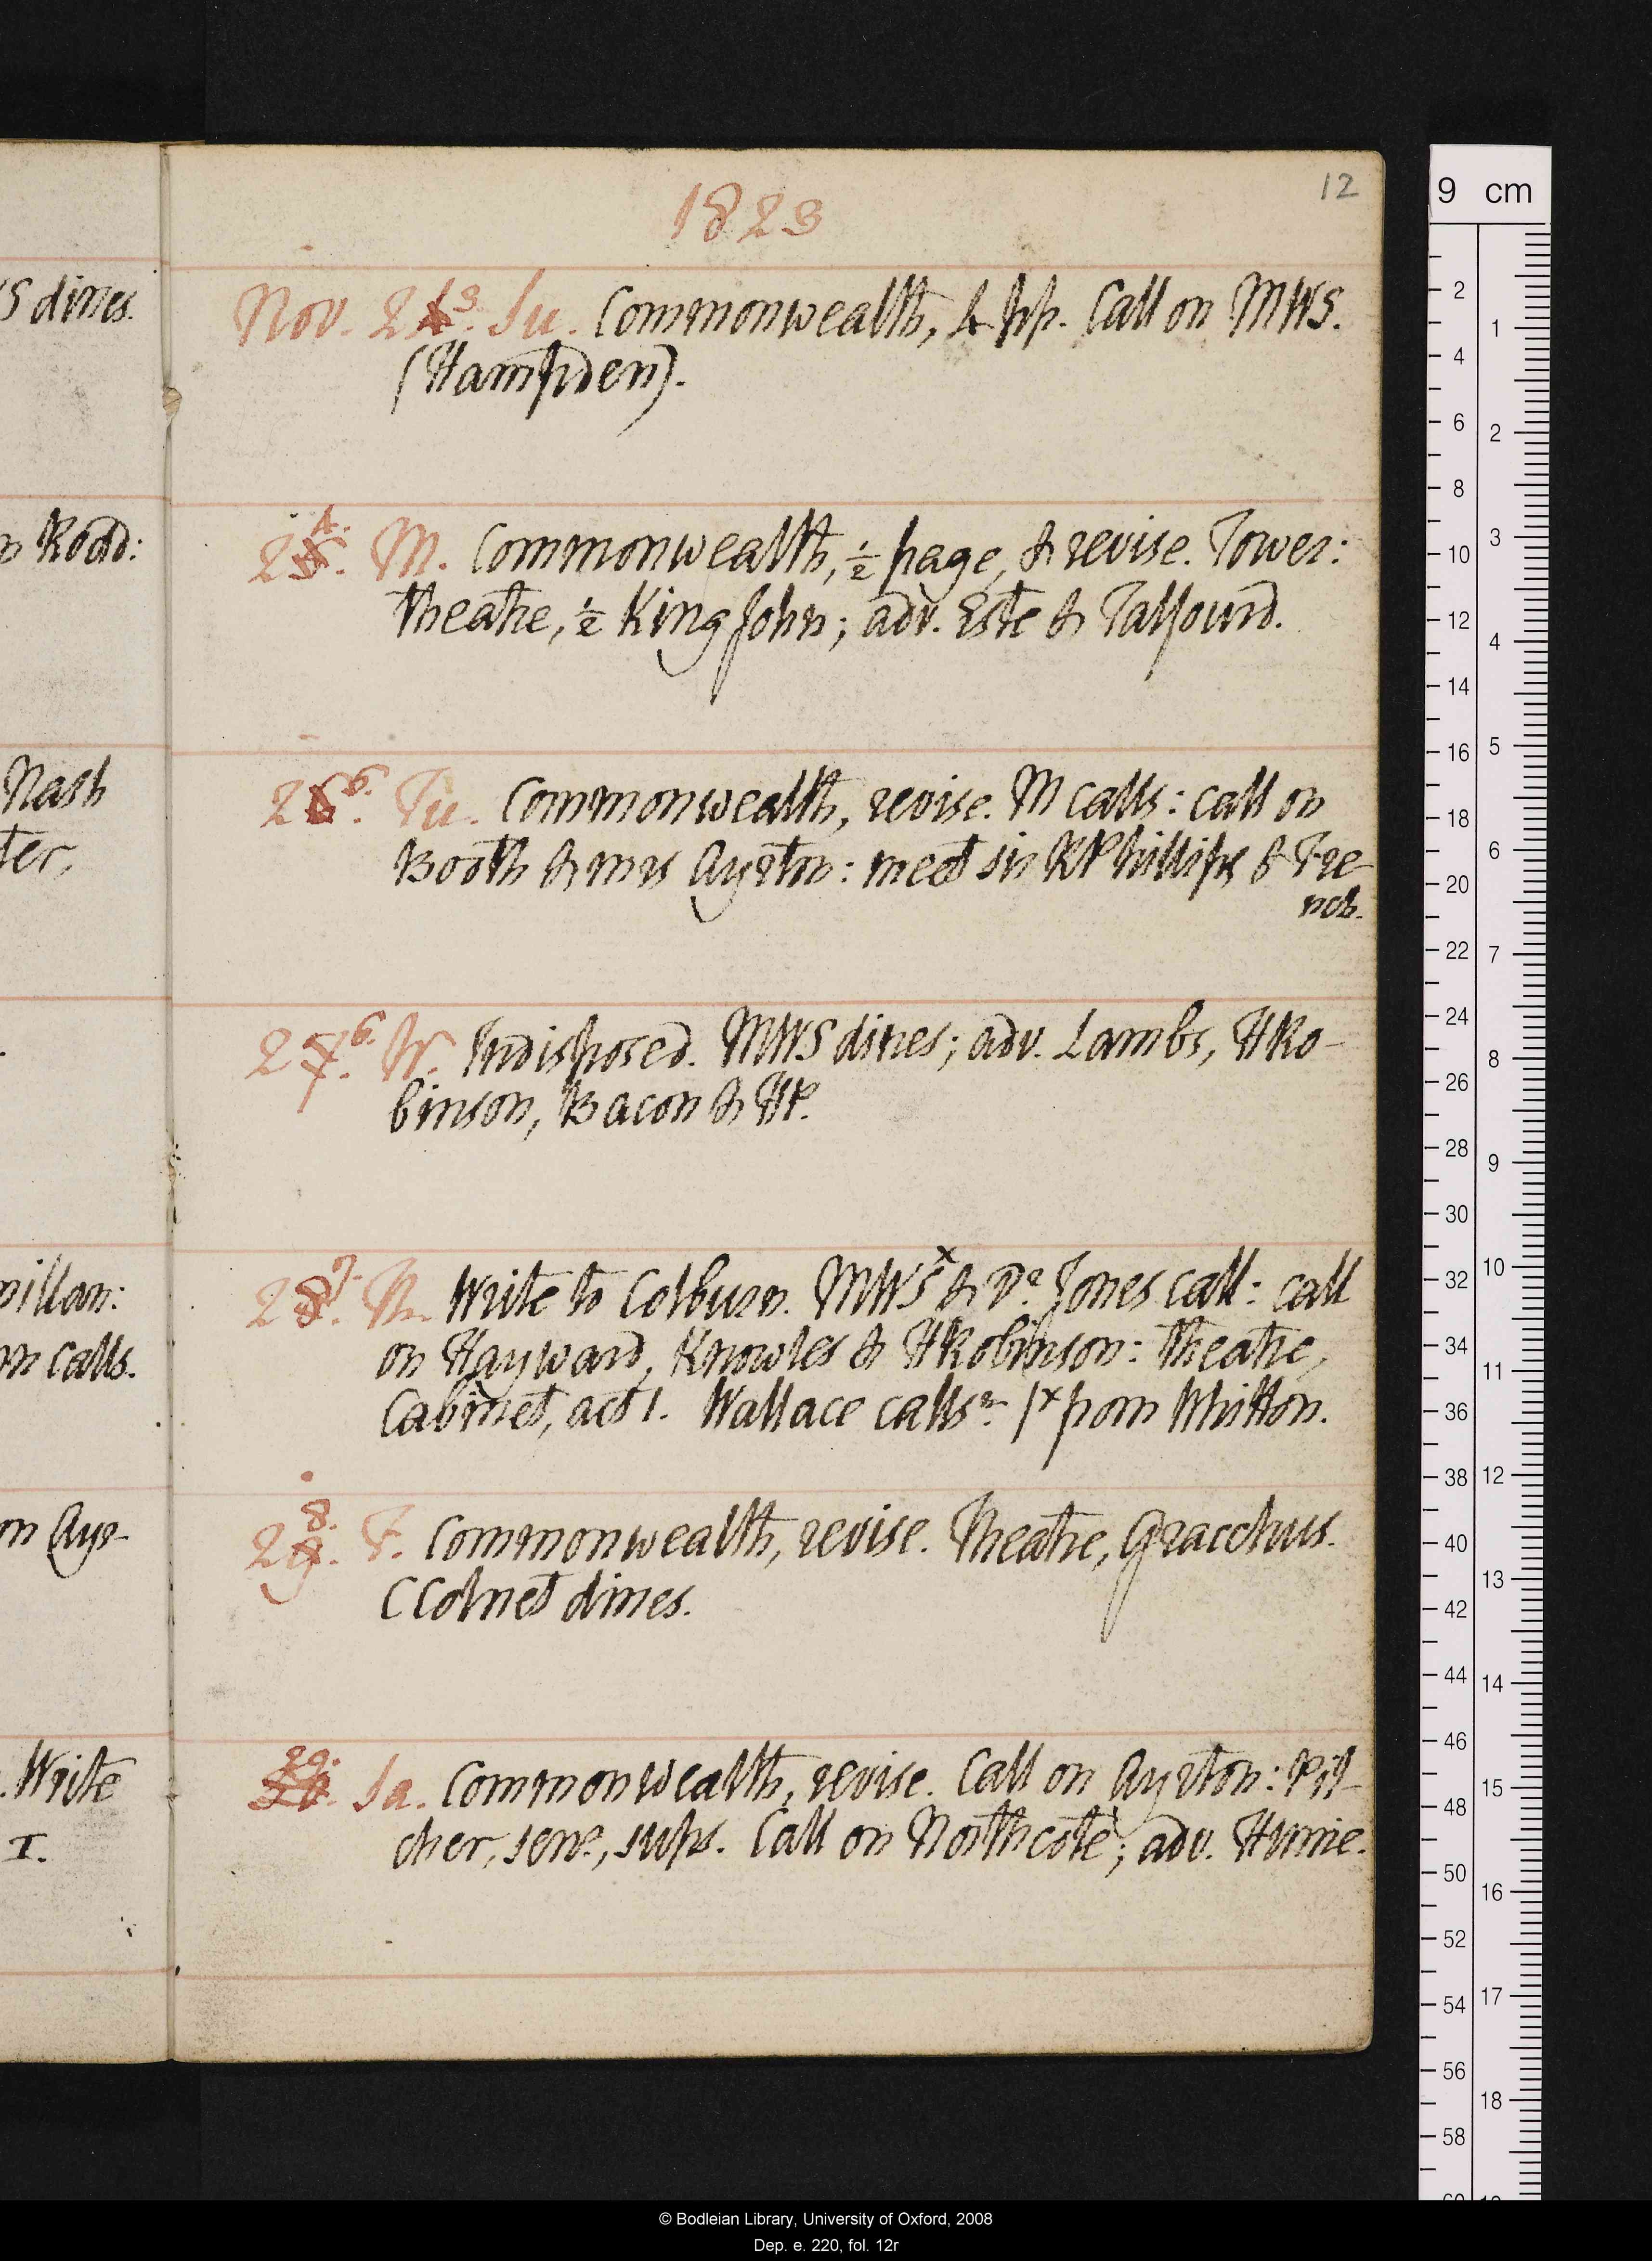 S dines.
n Rodd:
Nash
ter,
millan:
nn calls.
on Ayr-
. Write
I.
12
1823
Nov. 24 3. Su. Commonwealth, 4 pp. Call on MWS.
(Hampden).
25 4. M. Commonwealth, ½ page, & revise. Tower:
theatre, ½ King John; adv. Este & Talfourd.
26 5. Tu. Commonwealth, revise. M calls: call on
Booth & mrs Ayrton: meet sir RPhillips & Fre-
nch.
27 6. W. Indisposed. MWS dines; adv. Lambs, HRo-
binson, Bacon & HP.
28 7. Th. Write to Colburn. MWS x & Dr. Jones call: call
on Hayward, Knowles & HRobinson: theatre,
Cabinet, act 1. Wallace calls n. | x from Whitton.
29 8. F. Commonwealth, revise. Theatre, Gracchus.
CColnet dines.
30 29. Sa. Commonwealth, revise. Call on Ayrton: Pil-
cher, senr., sups. Call on Northcote; adv. Hunie.
9 cm
2 4 6 8 10 12 14 16 18 20 22 24 26 28 30 32 34 36 38 40 42 44 46 48 50 52 54 56 58
1 2 3 4 5 6 7 8 9 10 11 12 13 14 15 16 17 18
© Bodleian Library, University of Oxford, 2008
Dep. e. 220, fol. 12r